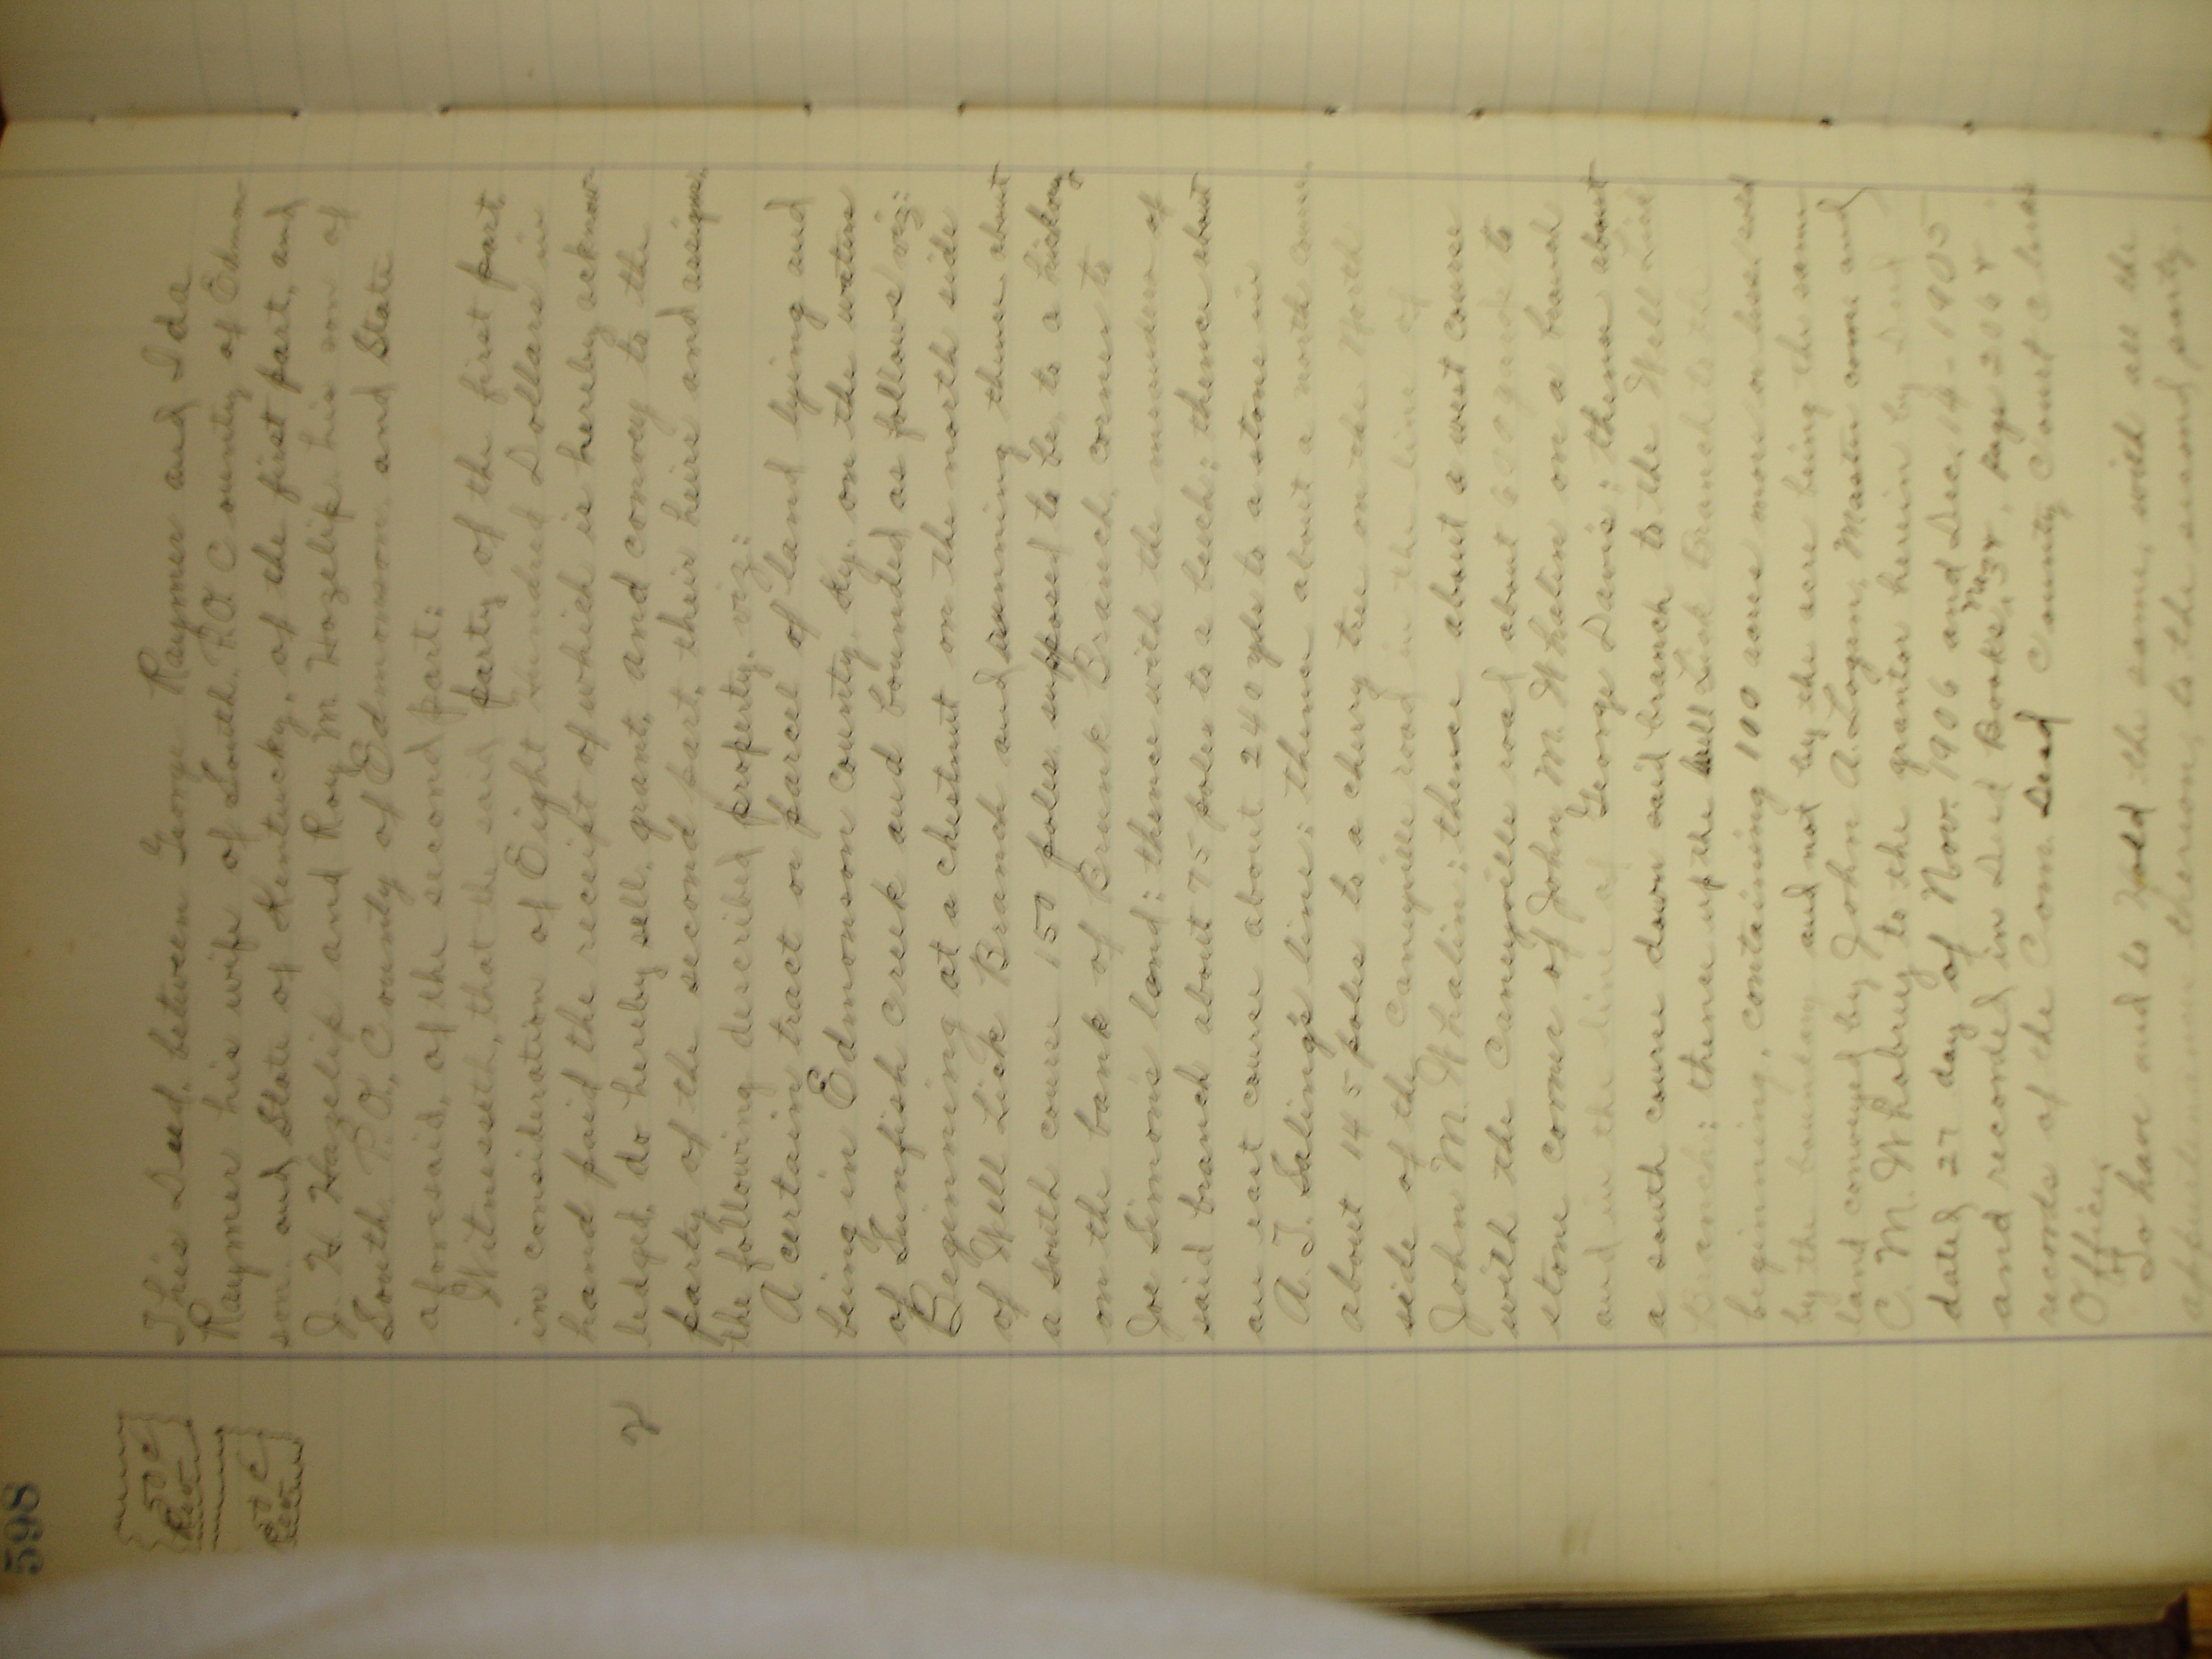 598
50 C
Rev.
50 C
Rev.
This Deed, between George Raymer and Ida
Raymer his wife of South, P.O. County of Edmon
son and State of Kentucky, of the first part, and
J. H. Hazelip and Roy M Hazelip his son of
South P.O., County of Edmonson and State
aforesaid, of the second part:
Witnesseth, that the said party of the first part
in consideration of Eight hundred Dollars in
hand paid the receipt of which is hereby acknow-
ledged, do hereby sell, grant, and convey to the
party of the second part, their heirs and assigns,
the following described property, viz:
A certain tract or parcel of land lying and
being in Edmonson County Ky. on the waters
of Sunfish Creek and bounded as follows viz:
Beginning at a chestnut on the north side
of Well Lick Branch and running thence about
a south course 150 poles supposed to be, to a hickory
on the bank of Brunk Branch, corner to
Joe Simons land; thence with the meanders of
said branch about 75 poles to a beech; thence about
an east course about 240 yds to a stone in
A. T. Saling's line; thence about a north course
about 145 poles to a cherry tree on the North
side of the Caneyville road in the line of
John M. Whalin; thence about a west course
with the Caneyville road about 600 yards to
stone corner of John M. Whalin on a branch
and in the line of George Davis; thence about
a south course down said branch to the Well Lick
Branch; thence up the Well Lick Branch to the
beginning, containing 100 acres more or less, sold
by the boundary and not by the acre being the same
land conveyed by John A. Logan, Master com and
C. M. Whobrey to the grantor herein by Deed
dated 27 day of Nov. 1906 and Dec. 14 - 1905
and recorded in Deed Books, No.
records of the Com. Deed County Court Clerks
Office,
To have and to Hold the same, with all the
appurtenances thereon, to the second party,